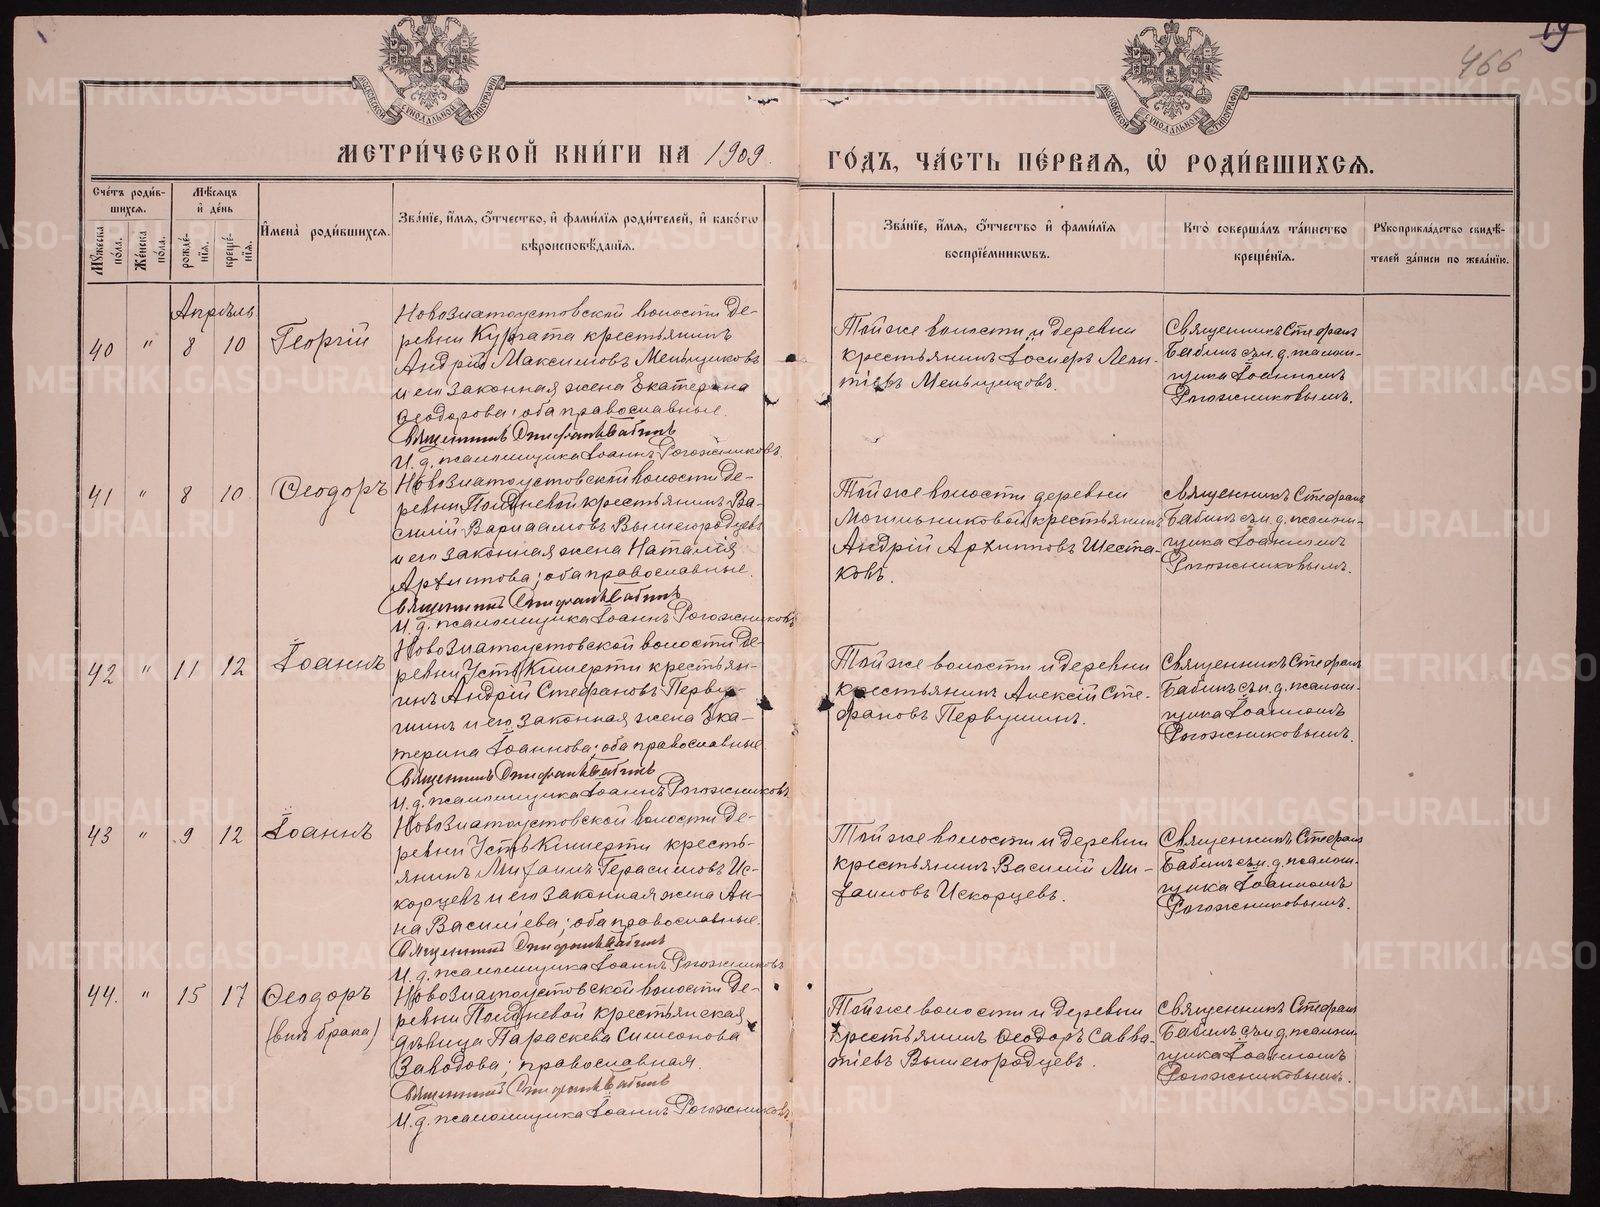 19
466
МОСКОВСКОЙ СѴНОДАЛЬНОЙ ТИПОГРАФІИ
МОСКОВСКОЙ СѴНОДАЛЬНОЙ ТИПОГРАФІИ
МЕТРИ́ЧЕСКОЙ КНИ́ГИ НА 1909 ГО́ДЪ, ЧА́СТЬ ПЕ́РВАѦ, Ѡ҆ РОДИ́ВШИХСѦ.
Сче́тъ роди́в-
шихсѧ.
Мꙋ́жеска по́ла.
Же́нска по́ла.
Мѣ́сѧцъ
и҆ де́нь
рожде́-
нїѧ.
креще́-
нїѧ.
И҆мена̀ роди́вшихсѧ.
Зва́нїе, и҆́мѧ, ѻ҆́тчество, и҆ фами́лїѧ роди́телей, и҆ како́гѡ
вѣроисповѣ́данїѧ.
Зва́нїе, и҆́мѧ, ѻ҆́тчество и҆ фами́лїѧ
воспрїе́мникѡвъ.
Кто̀ соверша́лъ та́инство
креще́нїѧ.
Рꙋкоприкла́дство свидѣ́-
телей за́писи по жела́нїю.
Апрѣль
40 " 8 10 Георгій
Новозлатоустовской волости де-
ревни Кургата крестьянинъ
Андрій Максимовъ Меньщиковъ
и его законная жена Екатерина
Ѳеодорова; оба православные.
Священникъ Стефанъ Бабинъ
И. д. псаломщика Іоаннъ Рогожниковъ.
Той же волости и деревни
крестьянинъ Іосифъ Леон-
тіевъ Меньщиковъ.
Священникъ Стефанъ
Бабинъ съ и. д. псалом-
щика Іоанномъ
Рогожниковымъ.
41 " 8 10 Ѳеодоръ
Новозлатоустовской волости де-
ревни Полдневой крестьянинъ Ва-
силій Варлаамовъ Вышегородцевъ
и его законная жена Наталія
Архипова; оба православные.
Священникъ Стефанъ Бабинъ
И. д. псаломщика Іоаннъ Рогожниковъ
Той же волости деревни
Могильниковой крестьянинъ
Андрій Архиповъ Шеста-
ковъ.
Священникъ Стефанъ
Бабинъ съ и. д. псалом-
щика Іоанномъ
Рогожниковымъ.
42 " 11 12 Іоаннъ
Новозлатоустовской волости де-
ревни Усть Кишерти крестьян-
инъ Андрій Стефановъ Перву-
шинъ и его законная жена Ека-
терина Іоаннова; оба православные.
Священникъ Стефанъ Бабинъ
И. д. псаломщика Іоаннъ Рогожниковъ
Той же волости и деревни
крестьянинъ Алексій Сте-
фановъ Первушинъ.
Священникъ Стефанъ
Бабинъ съ и. д. псалом-
щика Іоанномъ
Рогожниковымъ.
43 " 9 12 Іоаннъ
Новозлатоустовской волости де-
ревни Усть Кишерти кресть-
янинъ Михаилъ Герасимовъ Ис-
корцевъ и его законная жена Ан-
на Василіева; оба православные.
Священникъ Стефанъ Бабинъ
И. д. псаломщика Іоаннъ Рогожниковъ
Той же волости и деревни
крестьянинъ Василій Ми-
хаиловъ Искорцевъ.
Священникъ Стефанъ
Бабинъ съ и. д. псалом-
щика Іоанномъ
Рогожниковымъ.
44. " 15 17 Ѳеодоръ
(внѣ брака)
Новозлатоустовской волости де-
ревни Полдневой крестьянская
дѣвица Параскева Симеонова
Заводова; православная.
Священникъ Стефанъ Бабинъ
И. д. псаломщика Іоаннъ Рогожниковъ
Той же волости и деревни
крестьянинъ Ѳеодоръ Савва-
тіевъ Вышегородцевъ.
Священникъ Стефанъ
Бабинъ съ и. д. псалом-
щика Іоанномъ
Рогожниковымъ.
METRIKI.GASO-URAL.RU